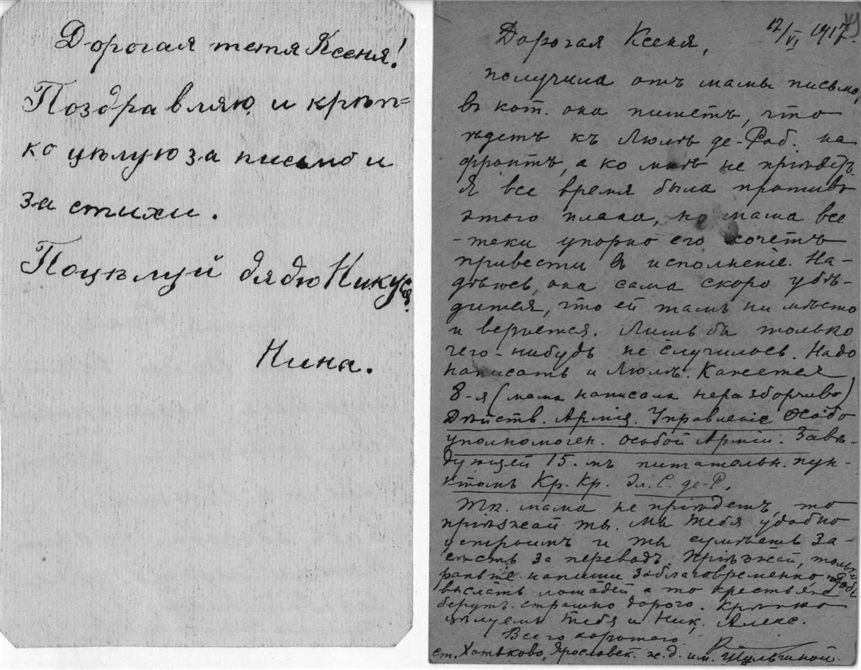 Дорогая тетя Ксеня!
Поздравляю и крѣп=
ко цѣлую за письмо и
за стихи.
Поцѣлуй дядю Никуся.
Нина.
12/VI 1917.
Дорогая Ксеня,
получила отъ мамы письмо,
въ кот. она пишетъ, что
ѣдетъ къ Люлѣ де-Роб. на
фронтъ, а ко мнѣ не пріѣдетъ.
Я все время была противъ
этого плана, но мама все
-таки упорно его хочетъ
привести въ исполненіе. На-
дѣюсь, она сама скоро убѣ-
дится, что ей тамъ ни мѣсто
и вернется. Лишь бы только
чего-нибудь не случилось. Надо
написать и Люлѣ. Кажется
8-я (мама написала неразборчиво)
Дѣйств. Армія. Управленіе Особо
уполномочен. особой Арміи. Завѣ-
дующей 15-мъ питательн. пун-
ктомъ Кр. Кр. Эл. С. де-Р.
Т.к. мама не пріѣдетъ, то
пріѣзжай ты. Мы тебя удобно
устроимъ и ты сумѣешь за-
сѣсть за переводъ. Пріѣзжай, только
раньше напиши заблаговременно чтобы
выслать лошадей а то крестьяне
берутъ страшно дорого. Крѣпко
цѣлуемъ тебя и Ник. Алекс.
Всего хорошаго
ст. Хотьково, Ярославск. ж.д. им. Шульгиной.